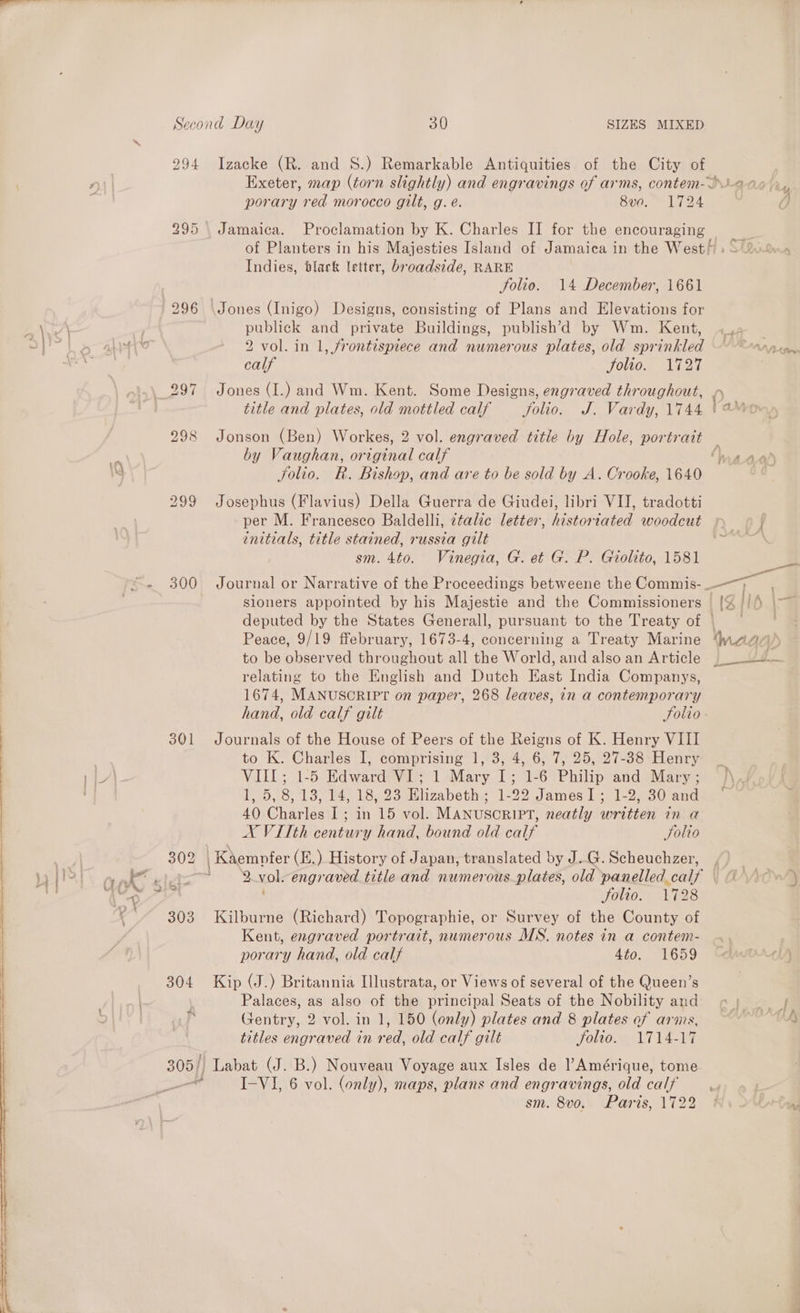 Second Day 30 SIZES MIXED
294 Izacke (R. and S.) Remarkable Antiquities of the City of
Exeter, map (torn slightly) and engravings of arms, contem-
porary red morocco gilt, g. e. 8vo. 1724
295 Jamaica. Proclamation by K. Charles II for the encouraging
of Planters in his Majesties Island of Jamaica in the West
Indies, black letter, broadside, RARE
folio. 14 December, 1661
296 Jones (Inigo) Designs, consisting of Plans and Elevations for
publick and private Buildings, publish'd by Wm. Kent,
2 vol. in 1, frontispiece and numerous plates, old sprinkled
calf folio. 1727
297 Jones (I.) and Wm. Kent. Some Designs, engraved throughout,
title and plates, old mottled calf folio. J. Vardy, 1744
298 Jonson (Ben) Workes, 2 vol. engraved title by Hole, portrait
by Vaughan, original calf
folio. R. Bishop, and are to be sold by A. Crooke, 1640
299 Josephus (Flavius) Della Guerra de Giudei, libri VII, tradotti
per M. Francesco Baldelli, italic letter, historiated woodcut
initials, title stained, russia gilt
sm. 4to. Vinegia, G. et G. P. Giolito, 1581
300 Journal or Narrative of the Proceedings betweene the Commis-
sioners appointed by his Majestie and the Commissioners
deputed by the States Generall, pursuant to the Treaty of
Peace, 9/19 ffebruary, 1673-4, concerning a Treaty Marine
to be observed throughout all the World, and also an Article
relating to the English and Dutch East India Companys,
1674, MANUSCRIPT on paper, 268 leaves, in a contemporary
hand, old calf gilt folio
301 Journals of the House of Peers of the Reigns of K. Henry VIII
to K. Charles I, comprising 1, 3, 4, 6, 7, 25, 27-38 Henry
VIII; 1-5 Edward VI; 1 Mary I; 1-6 Philip and Mary;
1, 5, 8, 13, 14, 18, 23 Elizabeth; 1-22 James I; 1-2, 30 and
40 Charles I; in 15 vol. MANUSCRIPT, neatly written in a
XVIIth century hand, bound old calf folio
302 Kaempfer (E.) History of Japan, translated by J. G. Scheuchzer,
2 vol. engraved title and numerous plates, old panelled calf
folio. 1728
303 Kilburne (Richard) Topographie, or Survey of the County of
Kent, engraved portrait, numerous MS. notes in a contem-
porary hand, old calf 4to. 1659
304 Kip (J.) Britannia Illustrata, or Views of several of the Queen's
Palaces, as also of the principal Seats of the Nobility and
Gentry, 2 vol. in 1, 150 (only) plates and 8 plates of arms,
titles engraved in red, old calf gilt folio. 1714-17
305 Labat (J. B.) Nouveau Voyage aux Isles de l'Amérique, tome
I-VI, 6 vol. (only), maps, plans and engravings, old calf
sm. 8vo. Paris, 1722